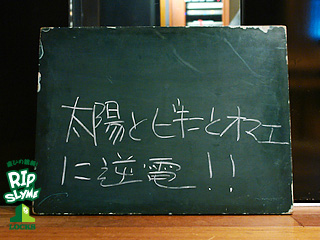 太陽とビキニとオマエ
に逆電!!
RIP
SLYME
LOCKS